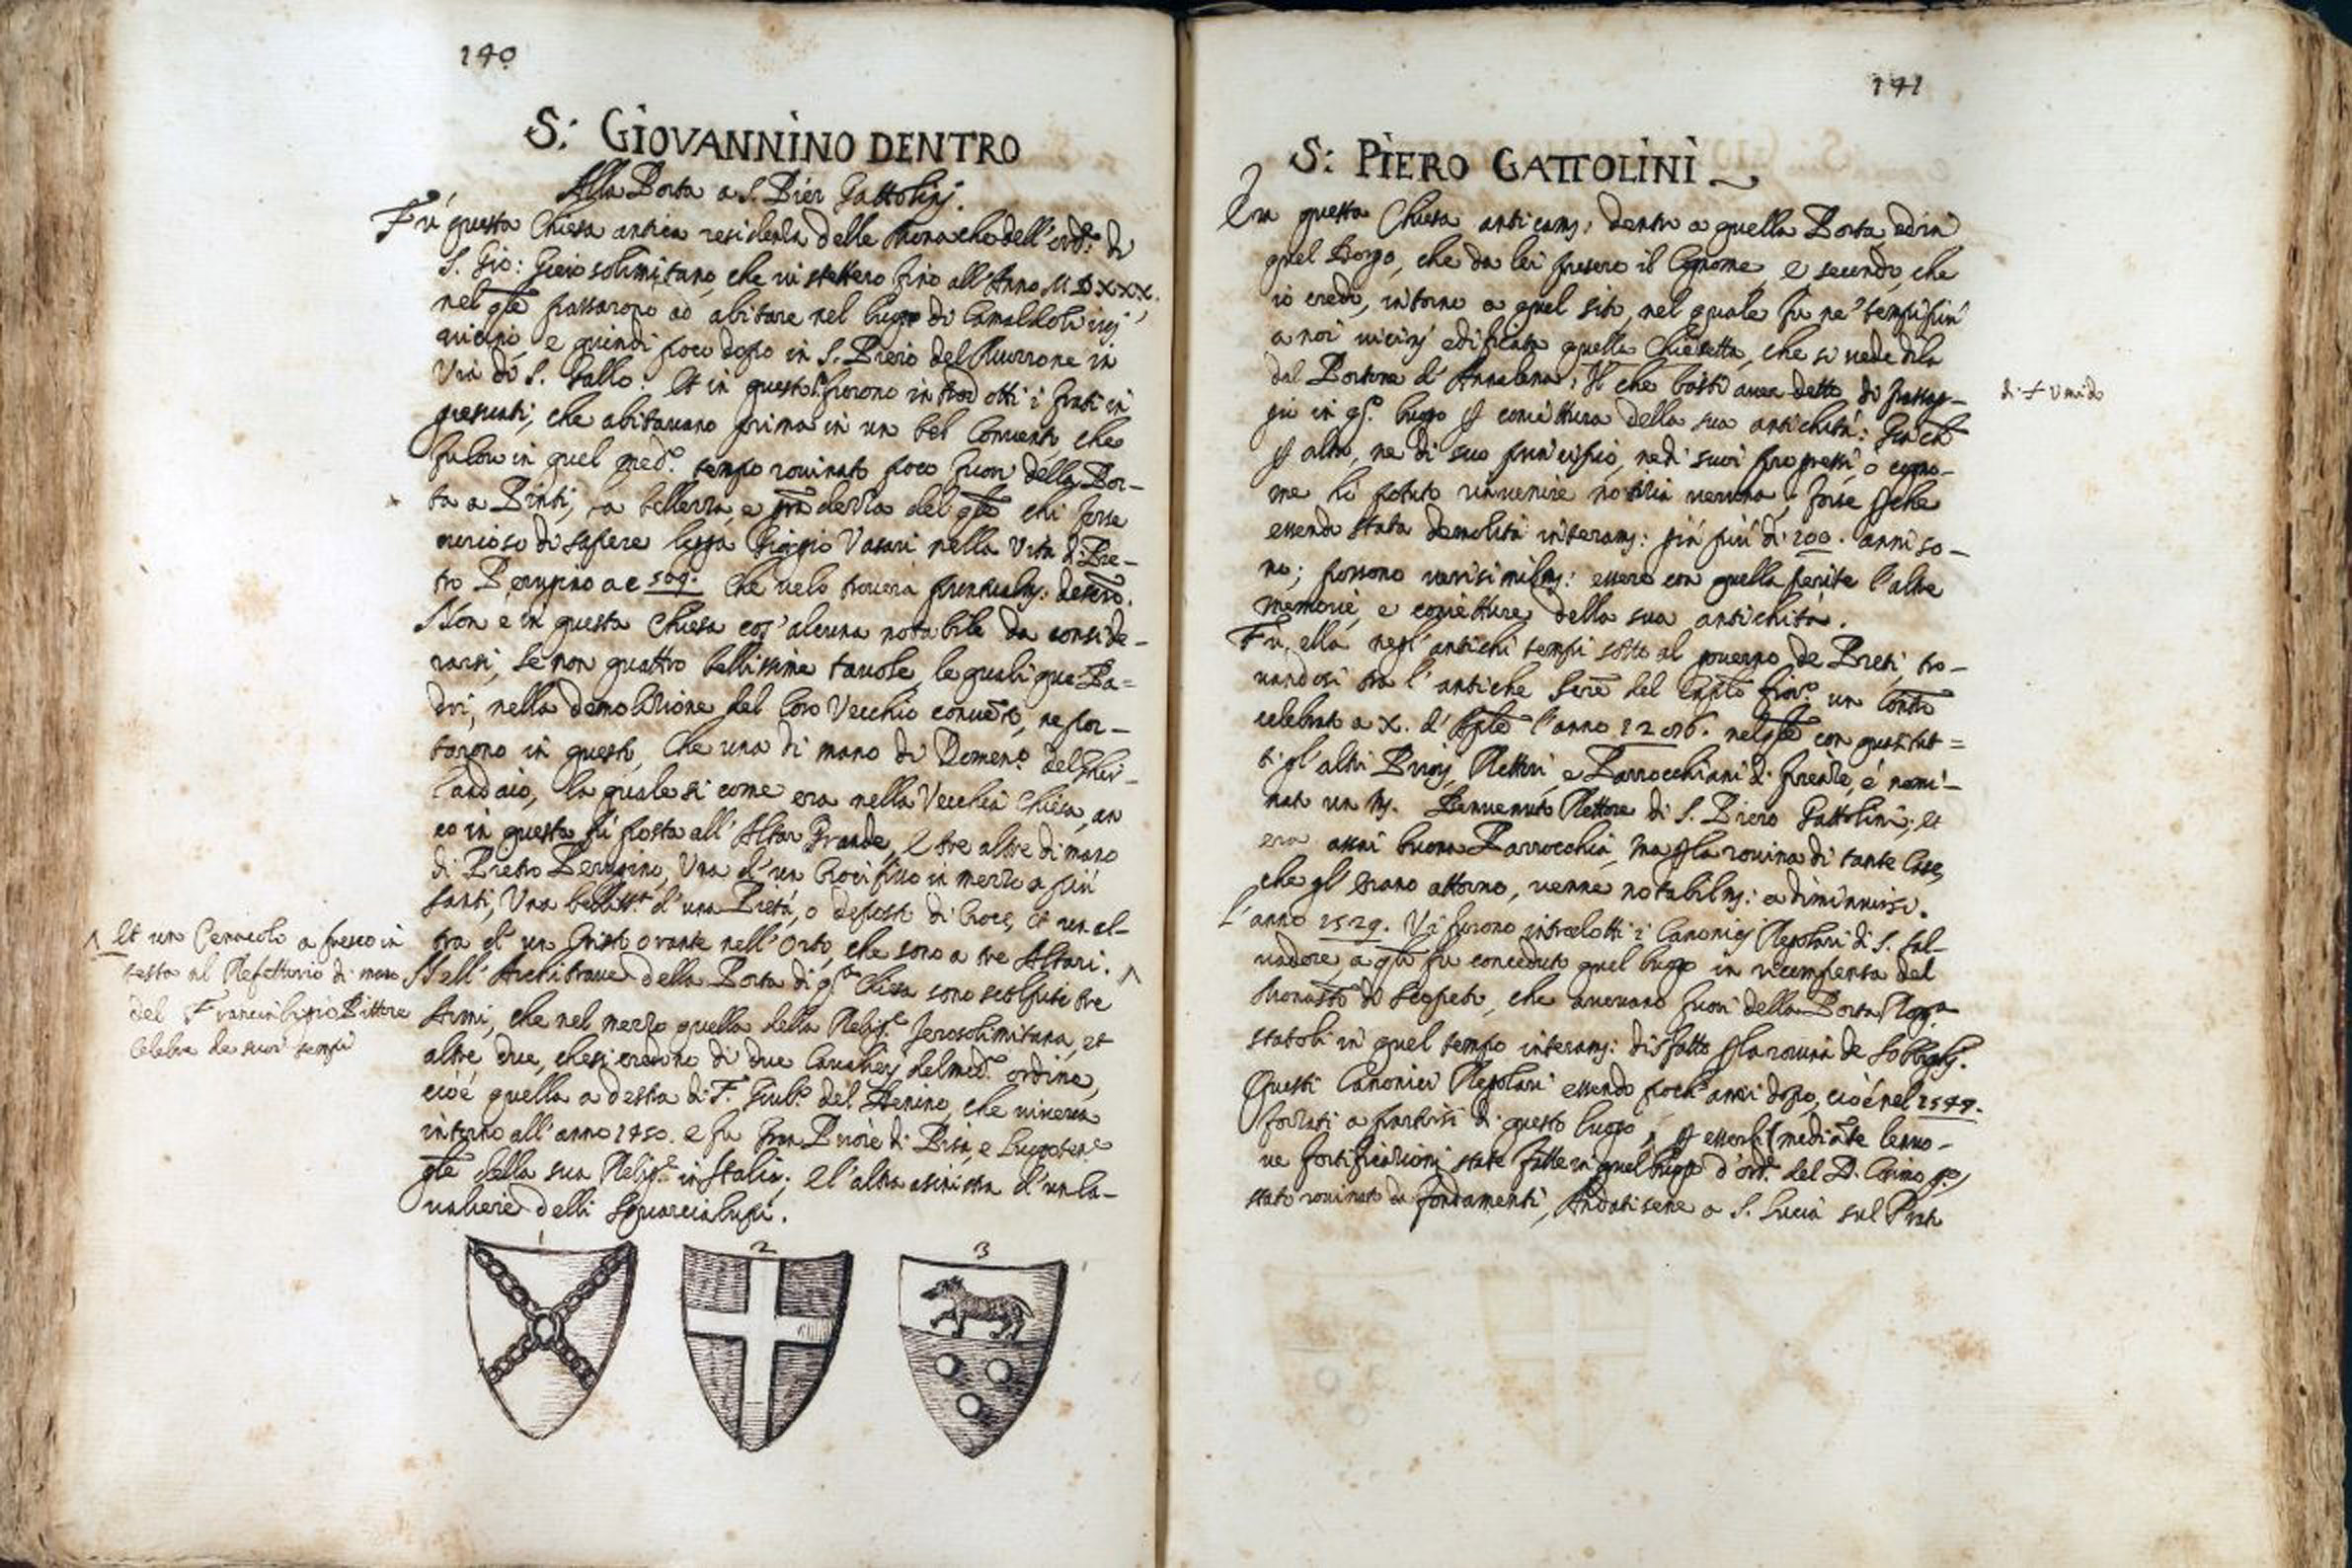 140
S: GIOVANNINO DENTRO
Alla Porta a S. Pier Gattolinj.
Fù questa Chiesa antica residenza delle Monache dell' ord.e di
S. Gio: Gierosolimitano, che vi stettero fino all' Anno MDXXX.
nel qle passarono ad abitare nel luogo di Camaldoli ivj
vicino, e quindi poco dopo in S. Piero del Murrone in
Via di S. Gallo: Et in questa furono introdotti i frati in
gesuati, che abitavano prima in un bel Convento, che
fu loro in quel med.o tempo rovinato poco fuori della Por-
ta a Pinti, la bellezza, e grandezza del qle chi fosse
curioso di sapere legga Giorgio Vasari nella Vita di Pie-
tro Perugino a c 509. che velo troverà puntualm: descro.
Non è in questa Chiesa cos' alcuna notabile da conside-
rarsi, se non quattro bellissime tavole, le quali que Pa=
dri, nella demolizione del loro Vecchio convto, ne por-
tarono in questo, che una di mano di Domen.o del Ghir-
landaio, la quale si come era nella Vecchia Chiesa, an
co in questa fù posta all' Altar Grande, e tre altre di mano
di Pietro Perugino, Una d' un Crocifisso in mezzo a più
santi, Una belliss.a d' una Pietà, o deposto di Croce, et un al-
tra d' un Cristo orante nell' Orto, che sono a tre Altari. ^
^ Et un Cenacolo a fresco in
testa al Refettorio di mano
del Franciabigio Pittore
Celebre de suoi tempi
Nell' Architrave della Porta di q.a Chiesa sono scolpite tre
Armi, che nel mezzo quella della Relig.e Jerosolimitana, et
altre due, che si credono di due Cavalierj del med.o ordine,
cioè quella a destra di F. Giul.o del Benino, che viveva
intorno all' anno 1450. e fu Gran Priore di Pisa, e Luogoten.e
gle della sua Relig.e in Italia; e l' altra a sinistra d' un Ca-
valiere delli Squarcialupi.
1 2 3
141
S: PIERO GATTOLINI
Era questa Chiesa anticam: dentro a quella Porta, ed in
quel Borgo, che da lei presero il Cognome, e secondo, che
io credo, intorno a quel sito, nel quale fu ne' tempi più
a noi vicinj edificata quella Chiesetta, che si vede di la
dal Portone d' Annalena; Il che basti aver detto di passag-
di + Umido
gio in q.o luogo p coniettura della sua antichità: Gia che
p altro, ne di suo principio, ne di suoi progressi, o cogno-
me hò potuto rinvenire notizia veruna, forse pche
essendo stata demolita interam: già più di 100. anni so-
no; possono verisimilm: essere con quella perite l' altre
memorie, e conietture della sua antichità.
Fu ella negl' antichi tempi sotto al governo de Preti, tro-
vandosi tra l' antiche del Caplo fior.o un Contto
celebrato a X. d' l' anno 1286. nel qle con quasi tut=
ti gl' altri Priorj, Rettori, e Parrocchiani di firenze, è nomi-
nato un Benvenuto Rettore di S. Piero Gattolini; et
era assai buona Parrocchia, ma p la rovina di tante Case,
che gl' erano attorno, venne notabilm: a diminuirsi.
L' anno 1529. Vi furono introdotti i Canonicj Regolari di S. Sal-
vadore, a qli fu conceduto quel luogo in ricompensa del
Monastro di Scopeto, che avevano fuori della Porta Rom.na
statoli in quel tempo interam: disfatto p la rovina de Sobborghj.
Questi Canonici Regolari essendo pochi anni dopo, cioè nel 1544.
forzati a partirsi di questo luogo, p esserli (mediante le nuo-
ve fortificazionj state fatte in quel luogo d' ord.e del D. Cosimo p.o)
stato rovinato da fondamenti, Andatisene a S. Lucia sul Prato